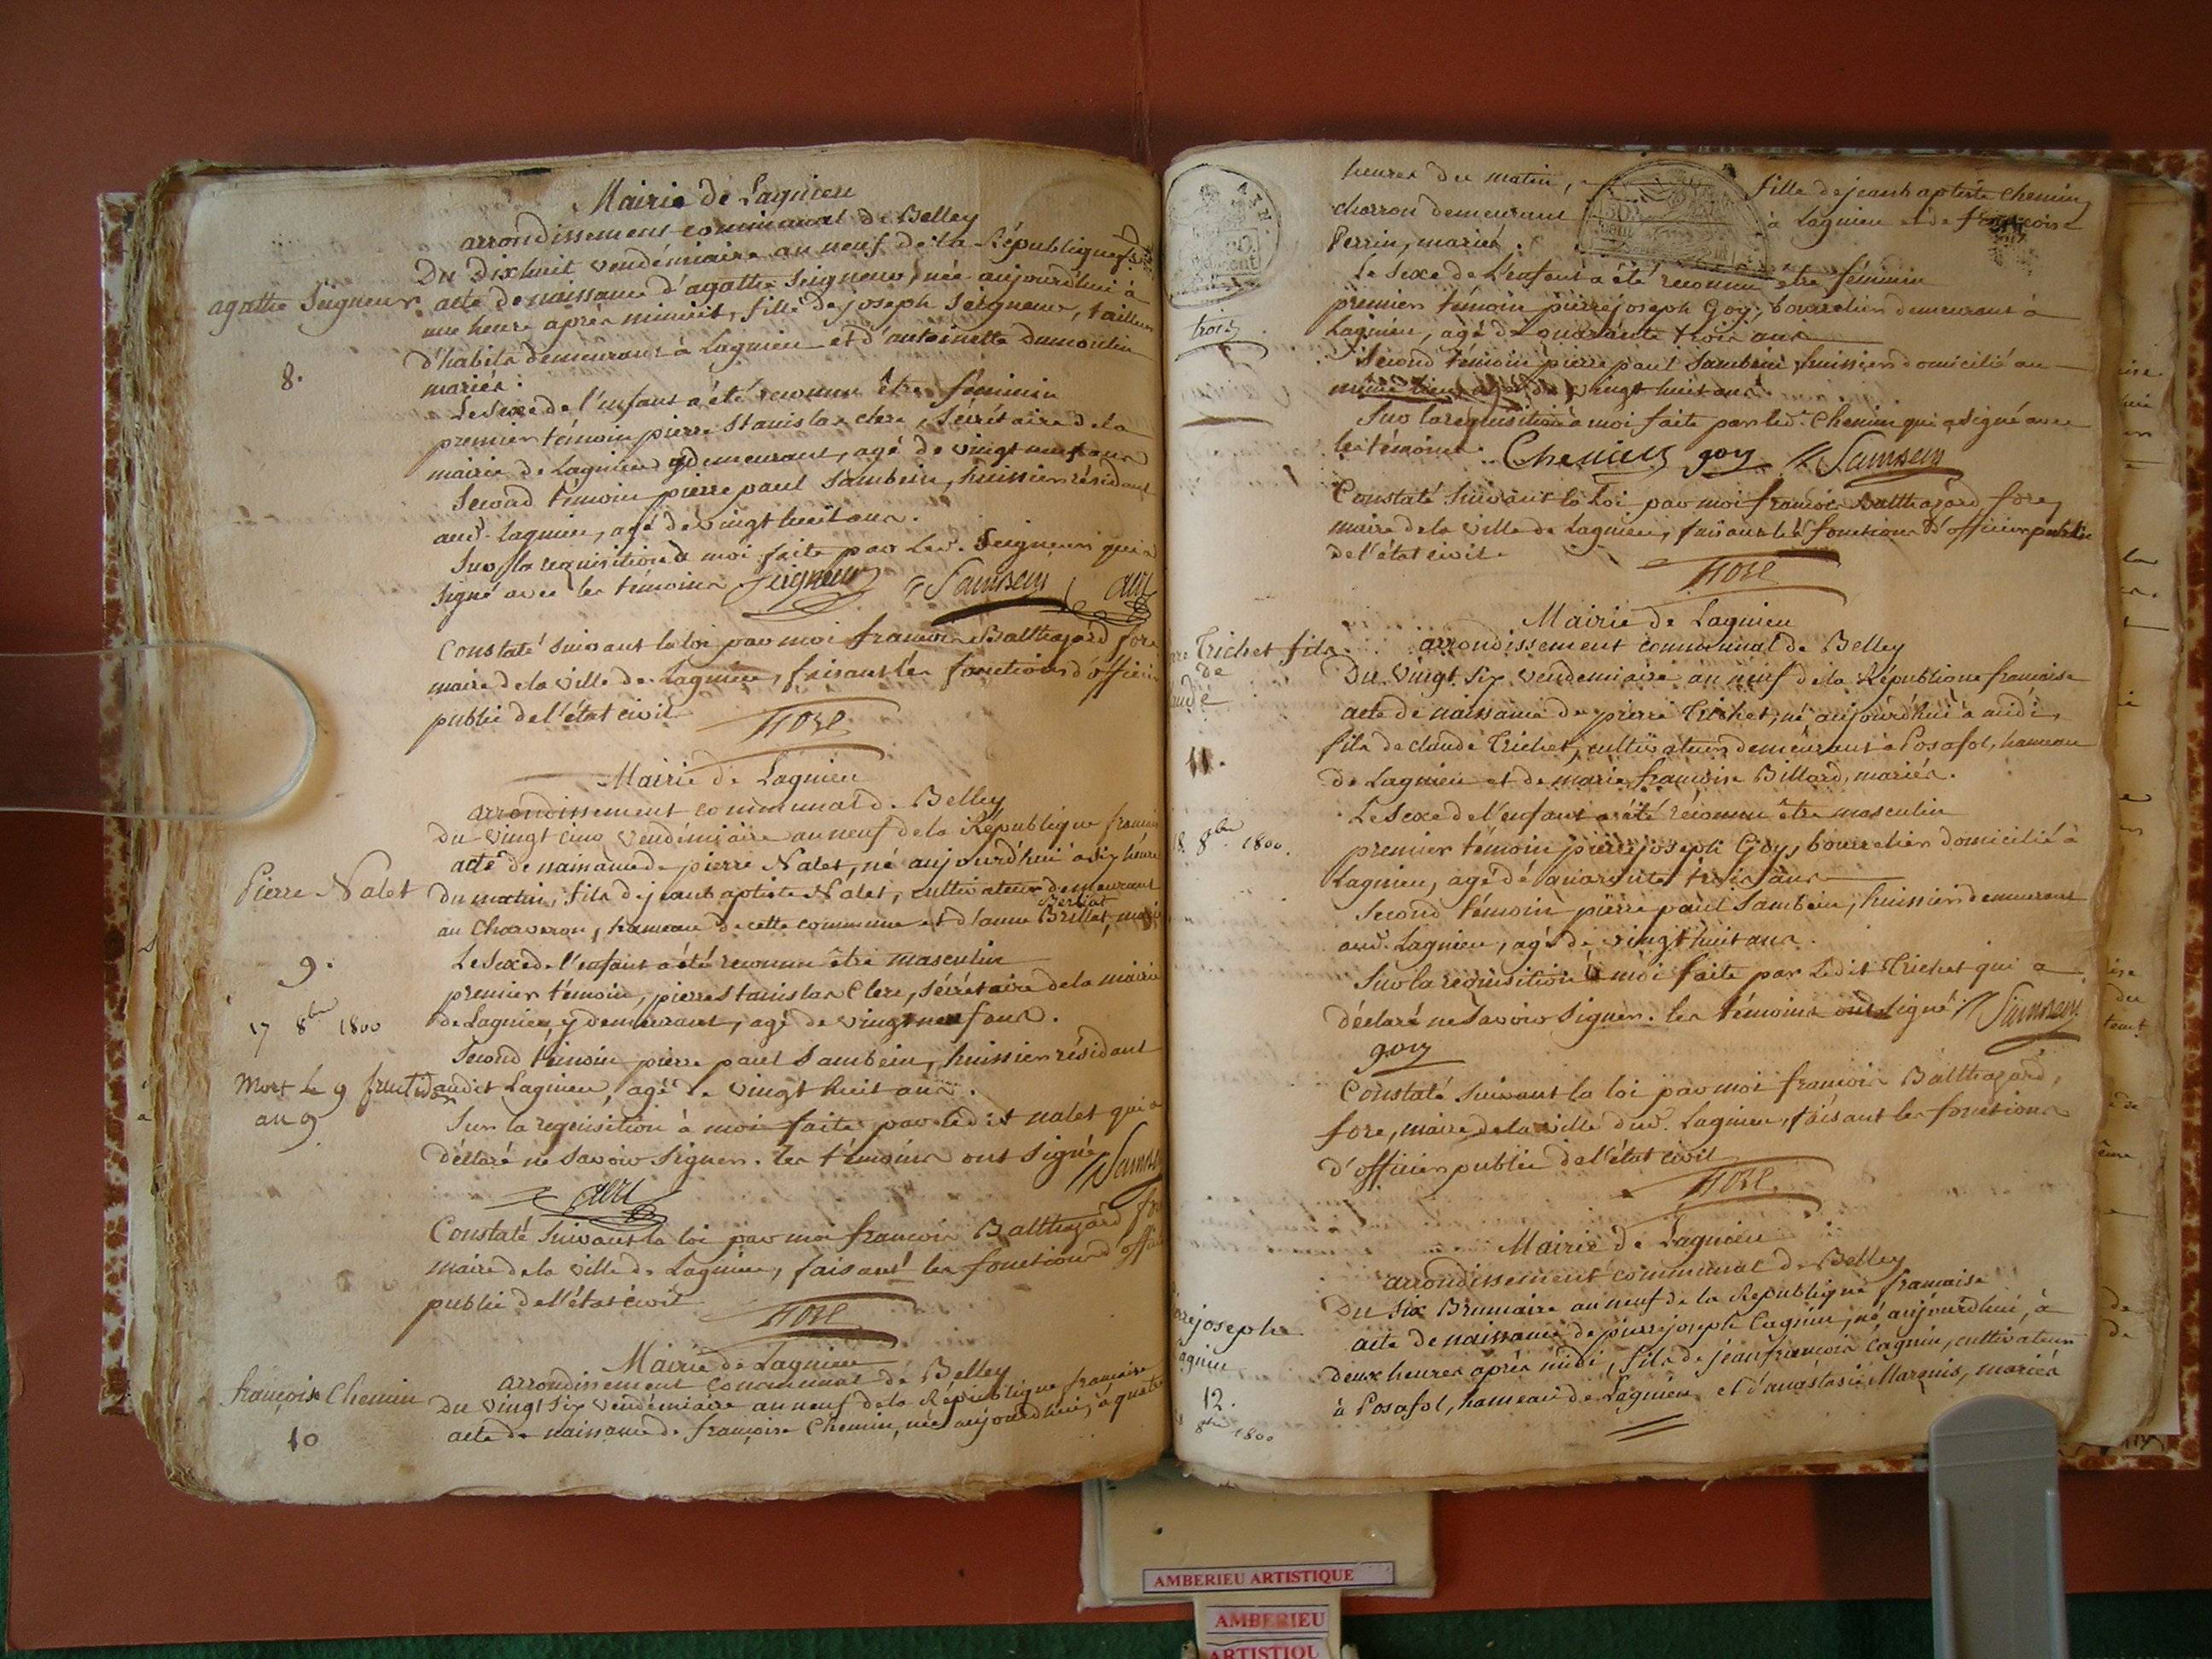 Mairie de Lagnieu
arrondissement communal de Belley
Du Dixhuit vendémiaire an neuf de la République
agathe Seigneur
acte de naissance d'agathe Seigneur, née aujourd'hui à
une heure après minuit, fille de joseph Seigneur, tailleur
d'habits demeurant à Lagnieu et d'antoinette Dumoulin
8.
mariés.
Le Sexe de l'enfant a été reconnu être féminin
premier témoin pierre Stanislas clerc, Sécrétaire de la
mairie de Lagnieu y demeurant, agé de vingt neuf ans
Second témoin pierre paul Sambein, huissier résidant
aud. Lagnieu, agé de vingt huit ans.
Sur la requisition à moi faite par led. Seigneur qui a
Signé avec les témoins Seigneur Sambein
Constaté Suivant la loi par moi françois Balthazard fore
maire de la ville de Lagnieu, faisant les fonctions d'officier
public de l'état civil
fore
Mairie de Lagnieu
arrondissement communal de Belley
du vingt cinq vendémiaire an neuf de la République
acte de naissance de pierre Nalet, né aujourd'hui à six heures
Pierre Nalet
Du matin, fils de jean baptiste Nalet, cultivateur demeurant
Berliot
au Charveron, hameau de cette commune et d'anne Brillet,
9.
Le Sexe de l'enfant a été reconnu être masculin
premier témoin, pierre Stanislas Clerc, Sécrétaire de la mairie
17 8bre 1800
de Lagnieu, y demeurant, agé de vingt neuf ans.
Second témoin pierre paul Sambein, huissier résidant
Mort le 9 fructidor
an 9
audit Lagnieu, agé de vingt huit ans.
Sur la requisition à moi faite par ledit nalet qui a
déclaré ne Savoir Signer. les témoins ont Signé
Constaté Suivant la loi par moi françois Balthazard
maire de la ville de Lagnieu, faisant les fonctions
public de l'état civil
fore
Mairie de Lagnieu
arrondissement communal de Belley
françoise Chemin
Du vingt Six vendémiaire an neuf de la République francaise
10
acte de naissance de françoise Chemin, née aujourdhui, à quatre
heures du matin, fille de jean baptiste chemin
charron demeurant à Lagnieu et de françoise
Perrin, mariés.
Le Sexe de L'enfant a été reconnu être féminin
premier témoin pierre joseph Goy, bourrelier demeurant à
trois
Lagnieu, agé de quarante trois ans
Second témoin pierre paul Sambein, huissier domicilié au
même lieu, agé de vingt huit ans.
Sur la requisition à moi faite par led. Chemin qui a Signé avec
les témoins. Chemin goy Sambein
Constaté Suivant la Loi par moi françois Balthazard fore,
maire de la ville de Lagnieu, faisant les fonctions d'officier public
de l'état civil.
fore
Mairie de Lagnieu
Trichet fils
de
arrondissement communal de Belley
Du vingt Six vendemiaire an neuf de la République francaise
acte de naissance de pierre Trichet, né aujourd'hui à midi,
11.
fils de claude Trichet, cultivateur demeurant à Posafol, hameau
de Lagnieu et de marie françoise Billard, mariés.
Le Sexe de l'enfant a été reconnu être masculin
18 8bre 1800.
premier témoin pierre joseph Goy, bourrelier domicilié à
Lagnieu, agé de quarante trois ans
Second témoin pierre paul Sambein, huissier demeurant
aud. Lagnieu, agé de vingt huit ans.
Sur la requisition à moi faite par Ledit Trichet qui a
déclaré ne Savoir Signer. les témoins ont Signé. Sambein
goy
Constaté Suivant la loi par moi françois Balthazard,
fore, maire de la ville dud. Lagnieu, faisant les fonctions
d'officier public de l'état civil
fore
Mairie de Lagnieu
arrondissement communal de Belley
joseph
Du Six Brumaire an neuf de la République francaise
acte de naissance de pierre joseph Cagnin, né aujourdhui, à
deux heures après midi, fils de jean françois Cagnin, cultivateur
12.
à Posafol, hameau de Lagnieu et d'anastasie Marquis, mariés
8bre 1800
AMBERIEU ARTISTIQUE
AMBERIEU
ARTISTIQU